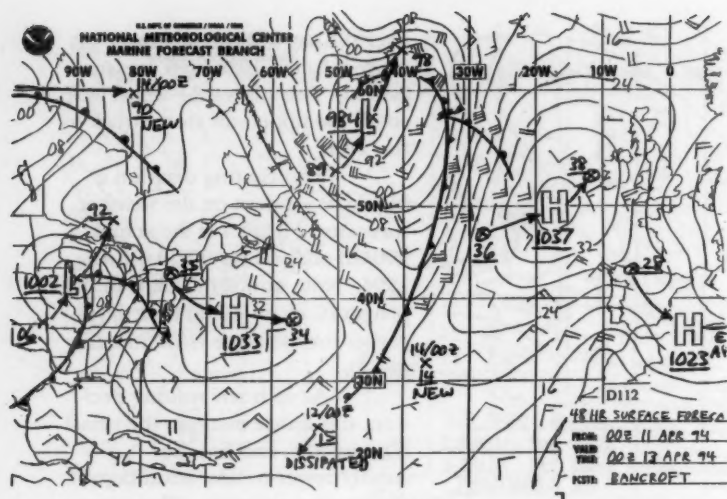 U.S. DEPT. OF COMMERCE / NOAA / NWS
NATIONAL METEOROLOGICAL CENTER
MARINE FORECAST BRANCH
90W 80W 70W 60W 50W 40W 30W 20W 10W 0
14/00Z
90
NEW
98
60N
984
89
92
00
08
24
16
50N
38
H
1037
36
32
92
1002
L
35
H
1033
32
34
40N
28
H
1023
14/00Z
14
NEW
30N
12/00Z
DISSIPATED
20N
D112
48 HR SURFACE FORECA
FROM: 00Z 11 APR 94
VALID
TIME: 00Z 13 APR 94
FCSTR: BANCROFT